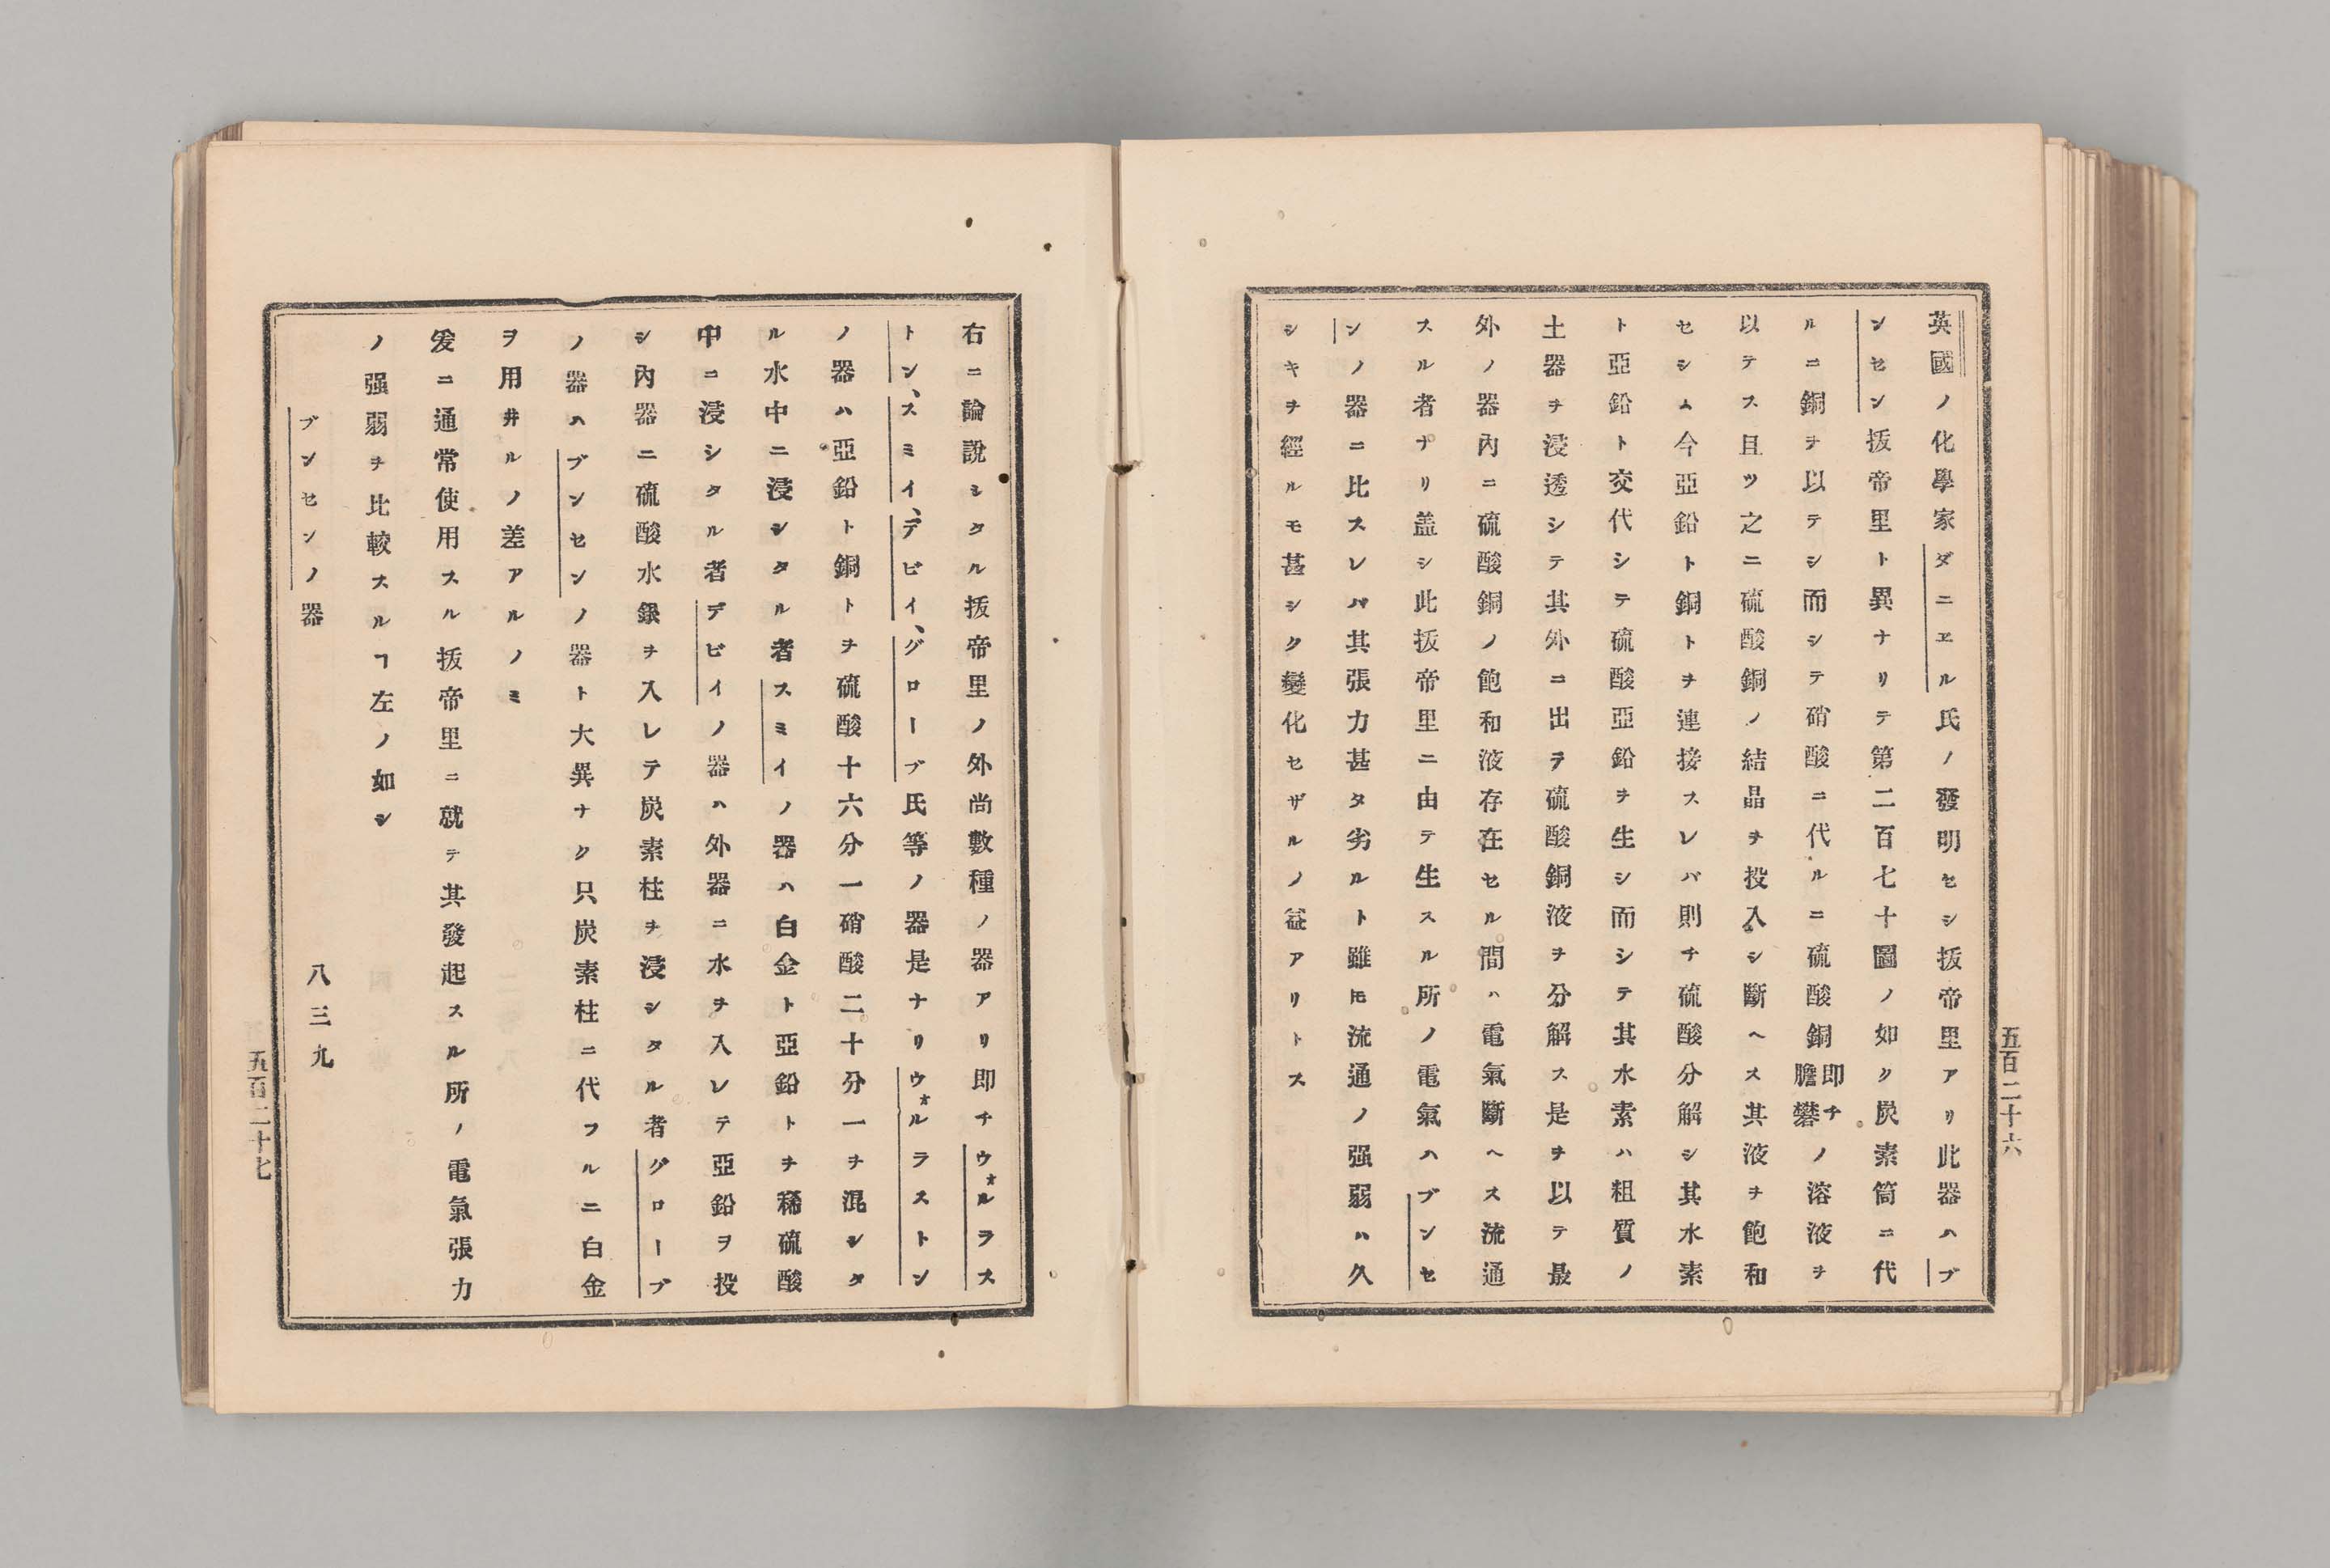 英國ノ化學家ダニヱル氏ノ發明セシ扳帝里アリ此器ハブ
ンセン扳帝里ト異ナリテ第二百七十圖ノ如ク炭素筒ニ代
ルニ銅ヲ以テシ而シテ硝酸ニ代ルニ硫酸銅即チ膽礬ノ溶液ヲ
以テス且ツ之ニ硫酸銅ノ結晶ヲ投入シ斷ヘス其液ヲ飽和
セシム今亞鉛ト銅トヲ連接スレバ則チ硫酸分解シ其水素
ト亞鉛ト交代シテ硫酸亞鉛ヲ生シ而シテ其水素ハ粗質ノ
土器ヲ浸透シテ其外ニ出ヲ硫酸銅液ヲ分解ス是ヲ以テ最
外ノ器內ニ硫酸銅ノ飽和液存在セル間ハ電氣斷ヘス流通
スル者ナリ盖シ此扳帝里ニ由テ生スル所ノ電氣ハブンセ
ンノ器ニ比スレバ其張力甚タ劣ルト雖𪜈流通ノ强弱ハ久
シキヲ經ルモ甚シク變化セザルノ益アリトス
五百二十六
右ニ論說シタル扳帝里ノ外尚數種ノ器アリ即チウォルラス
トン、スミイ、デビイ、グローブ氏等ノ器是ナリウォルラストン
ノ器ハ亞鉛ト銅トヲ硫酸十六分一硝酸二十分一ヲ混シタ
ル水中ニ浸シタル者スミイノ器ハ白金ト亞鉛トヲ稀硫酸
中ニ浸シタル者デビイノ器ハ外器ニ水ヲ入レテ亞鉛ヲ投
シ內器ニ硫酸水銀ヲ入レテ炭素柱ヲ浸シタル者グローブ
ノ器ハブンセンノ器ト大異ナク只炭素柱ニ代フルニ白金
ヲ用井ルノ差アルノミ
爰ニ通常使用スル扳帝里ニ就テ其發起スル所ノ電氣張力
ノ强弱ヲ比較スルヿ左ノ如シ
ブンセンノ器 八三九
五百二十七